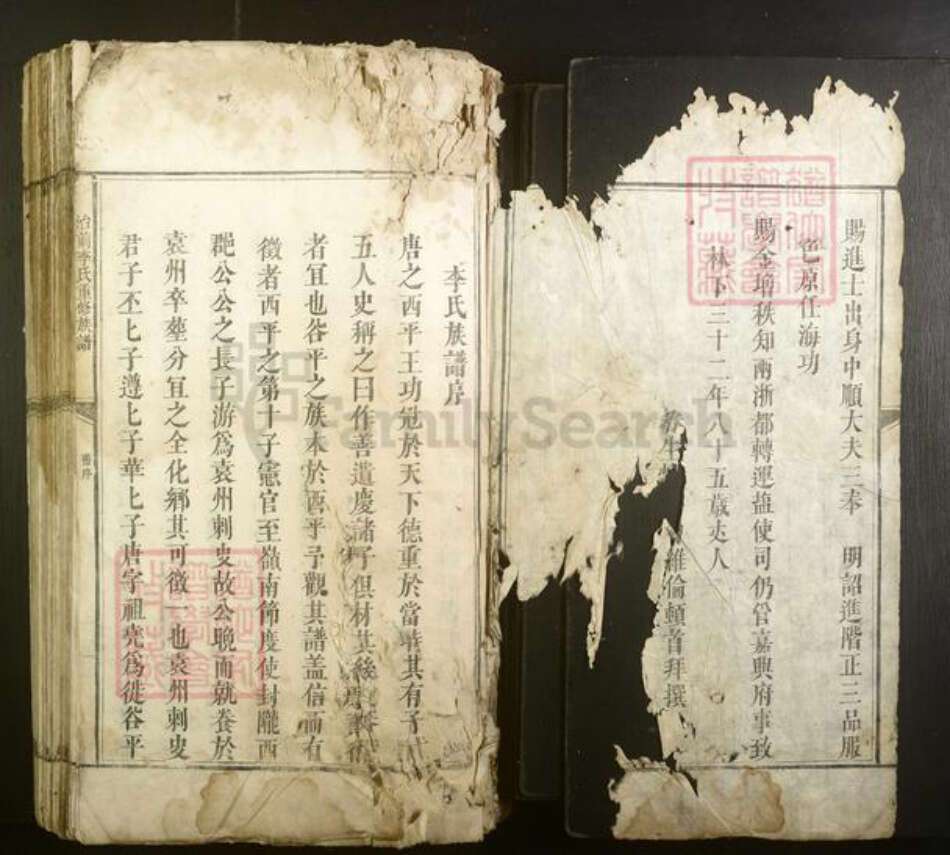 賜進士出身中順大夫三奉 明詔進階正三品服
色原任海功
賜金增秩知兩浙都轉運盐使司仍管嘉興府事致
林下三十二年八十五歲丈人
春生 維倫頓首拜撰
李氏族譜序
唐之西平王功冠於天下德重於當時其有子
五人史稱之曰作善遺慶諸子俱材其
者宜也谷平之族本於西平予觀其譜盖信而有
徵者西平之第十子憲官至嶺南節度使封隴西
郡公公之長子游爲袁州刺史故公晚而就養於
袁州卒塟分宜之全化鄉其可徵一也袁州刺史
君子丕丕子遵遵子華華子唐字祖堯爲徙谷平
李氏重修族譜
舊序
FamilySearch